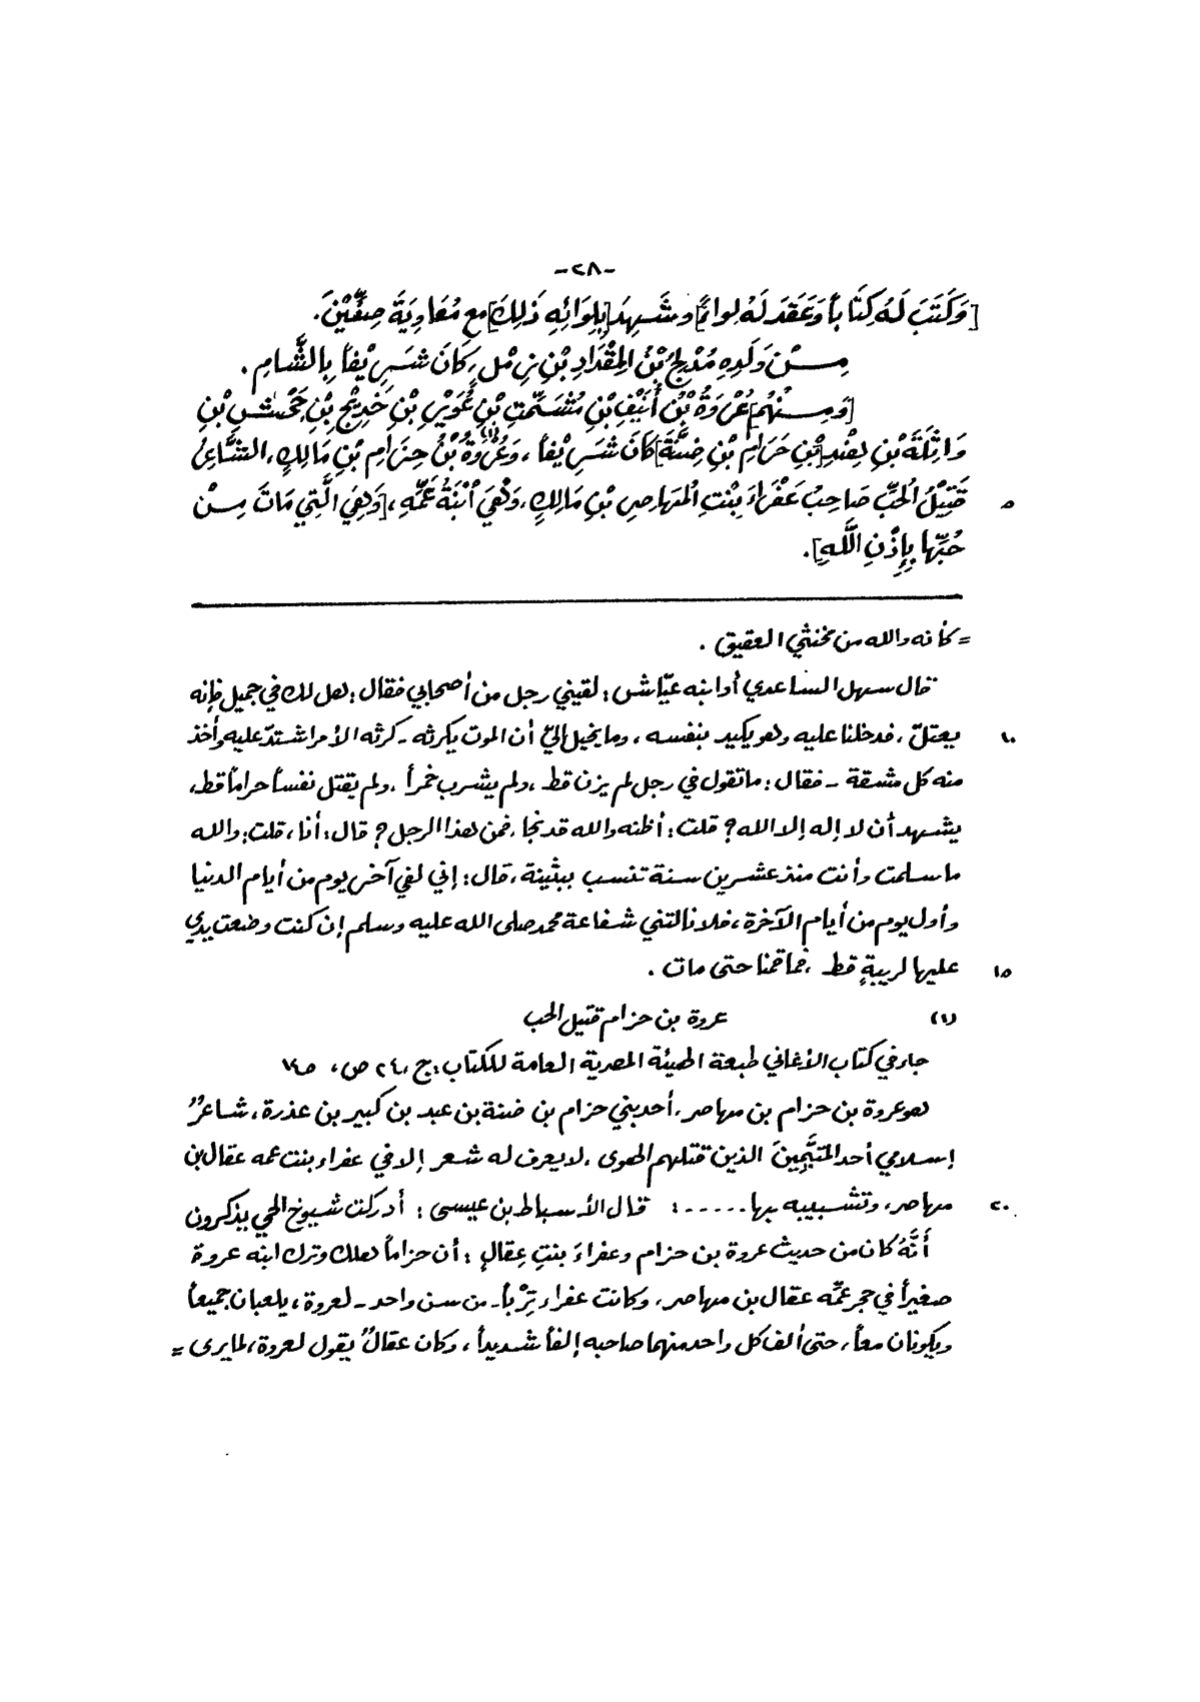 -٢٨-
[وَكَتَبَ لَهُ كِتَاباً وَعَقَدَ لَهُ لِواءً] وشَهِدَ [بِلِوَائِهِ ذَلِكَ] مع مُعَاوِيَةَ صِفِّيْنَ.
مِنْ وَلَدِهِ مُدْلِجُ بْنُ المِقْدَادِ بْنِ زِمْلٍ، كَانَ شَرِيْفاً بِالشَّامِ.
[وَمِنْهُم] عُرْوَةُ بْنُ أُنَيْفِ بْنِ مُشَمِّتِ بْنِ عُوَيْرِ بْنِ خَدِيْجِ بْنِ جَحَّاشِ بْنِ
وَاثِلَةَ بْنِ هِنْدِ [بْنِ حَرَامِ بْنِ ضِنَّةَ] كَانَ شَرِيْفاً، وَعُرْوَةُ (١) بْنُ حِزَامِ بْنِ مَالِكٍ، الشَّاعِرُ
٥ قَتِيْلُ الحُبِّ صَاحِبُ عَفْرَاءَ بِنْتِ المُهَاصِرِ بْنِ مَالِكٍ، وَهْيَ ابْنَةُ عَمِّهِ، [وَهِيَ الَّتِي مَاتَ مِنْ
حُبِّهَا بِإِذْنِ اللَّهِ].
= كأنه والله من مخنثي العقيق.
قال سهل الساعدي أو ابنه عيّاش: لقيني رجل من أصحابي فقال: هل لك في جميل فإنه
١٠ يعتلّ، فدخلنا عليه وهو يكيد بنفسه، وما يخيل إليّ أن الموت يكرثه - كرثه الأمر اشتدّ عليه وأخذ
منه كل مشقة - فقال: ما تقول في رجل لم يزن قط، ولم يشرب خمراً، ولم يقتل نفساً حراماً قط،
يشهد أن لا إله إلا الله؟ قلت: أظنه والله قد نجا، فمن هذا الرجل؟ قال: أنا، قلت: والله
ما سلمت وأنت منذ عشرين سنة تنسب ببثينة، قال: إني لفي آخر يوم من أيام الدنيا
وأول يوم من أيام الآخرة، فلا نالتني شفاعة محمد صلى الله عليه وسلم إن كنت وضعت يدي
١٥ عليها لريبةٍ قط، فما قمنا حتى مات.
(١) عروة بن حزام قتيل الحب
جاء في كتاب الأغاني طبعة الهيئة المصرية العامة للكتاب: ج، ٢٤ ص،
هو عروة بن حزام بن مهاصر، أحد بني حزام بن ضنة بن عبد بن كبير بن عذرة، شاعرٌ
إسلامي أحد المتيَّمِينَ الذين قتلهم الهوى، لا يعرف له شعر إلا في عفراء بنت عمه عقال بن
٢٠ مهاصر، وتشبيبه بها.....: قال الأسباط بن عيسى: أدركت شيوخ الحي يذكرون
أنَّهُ كان من حديث عروة بن حزام وعفراءَ بنتِ عِقالٍ: أن حزاماً هلك وترك ابنه عروة
صغيراً في حجر عمِّه عقال بن مهاصر، وكانت عفراء تِرْباً - من سن واحد - لعروة، يلعبان جميعاً
ويكونان معاً، حتى ألف كل واحد منهما صاحبه إلفاً شديداً، وكان عقالٌ يقول لعروة، لما يرى =